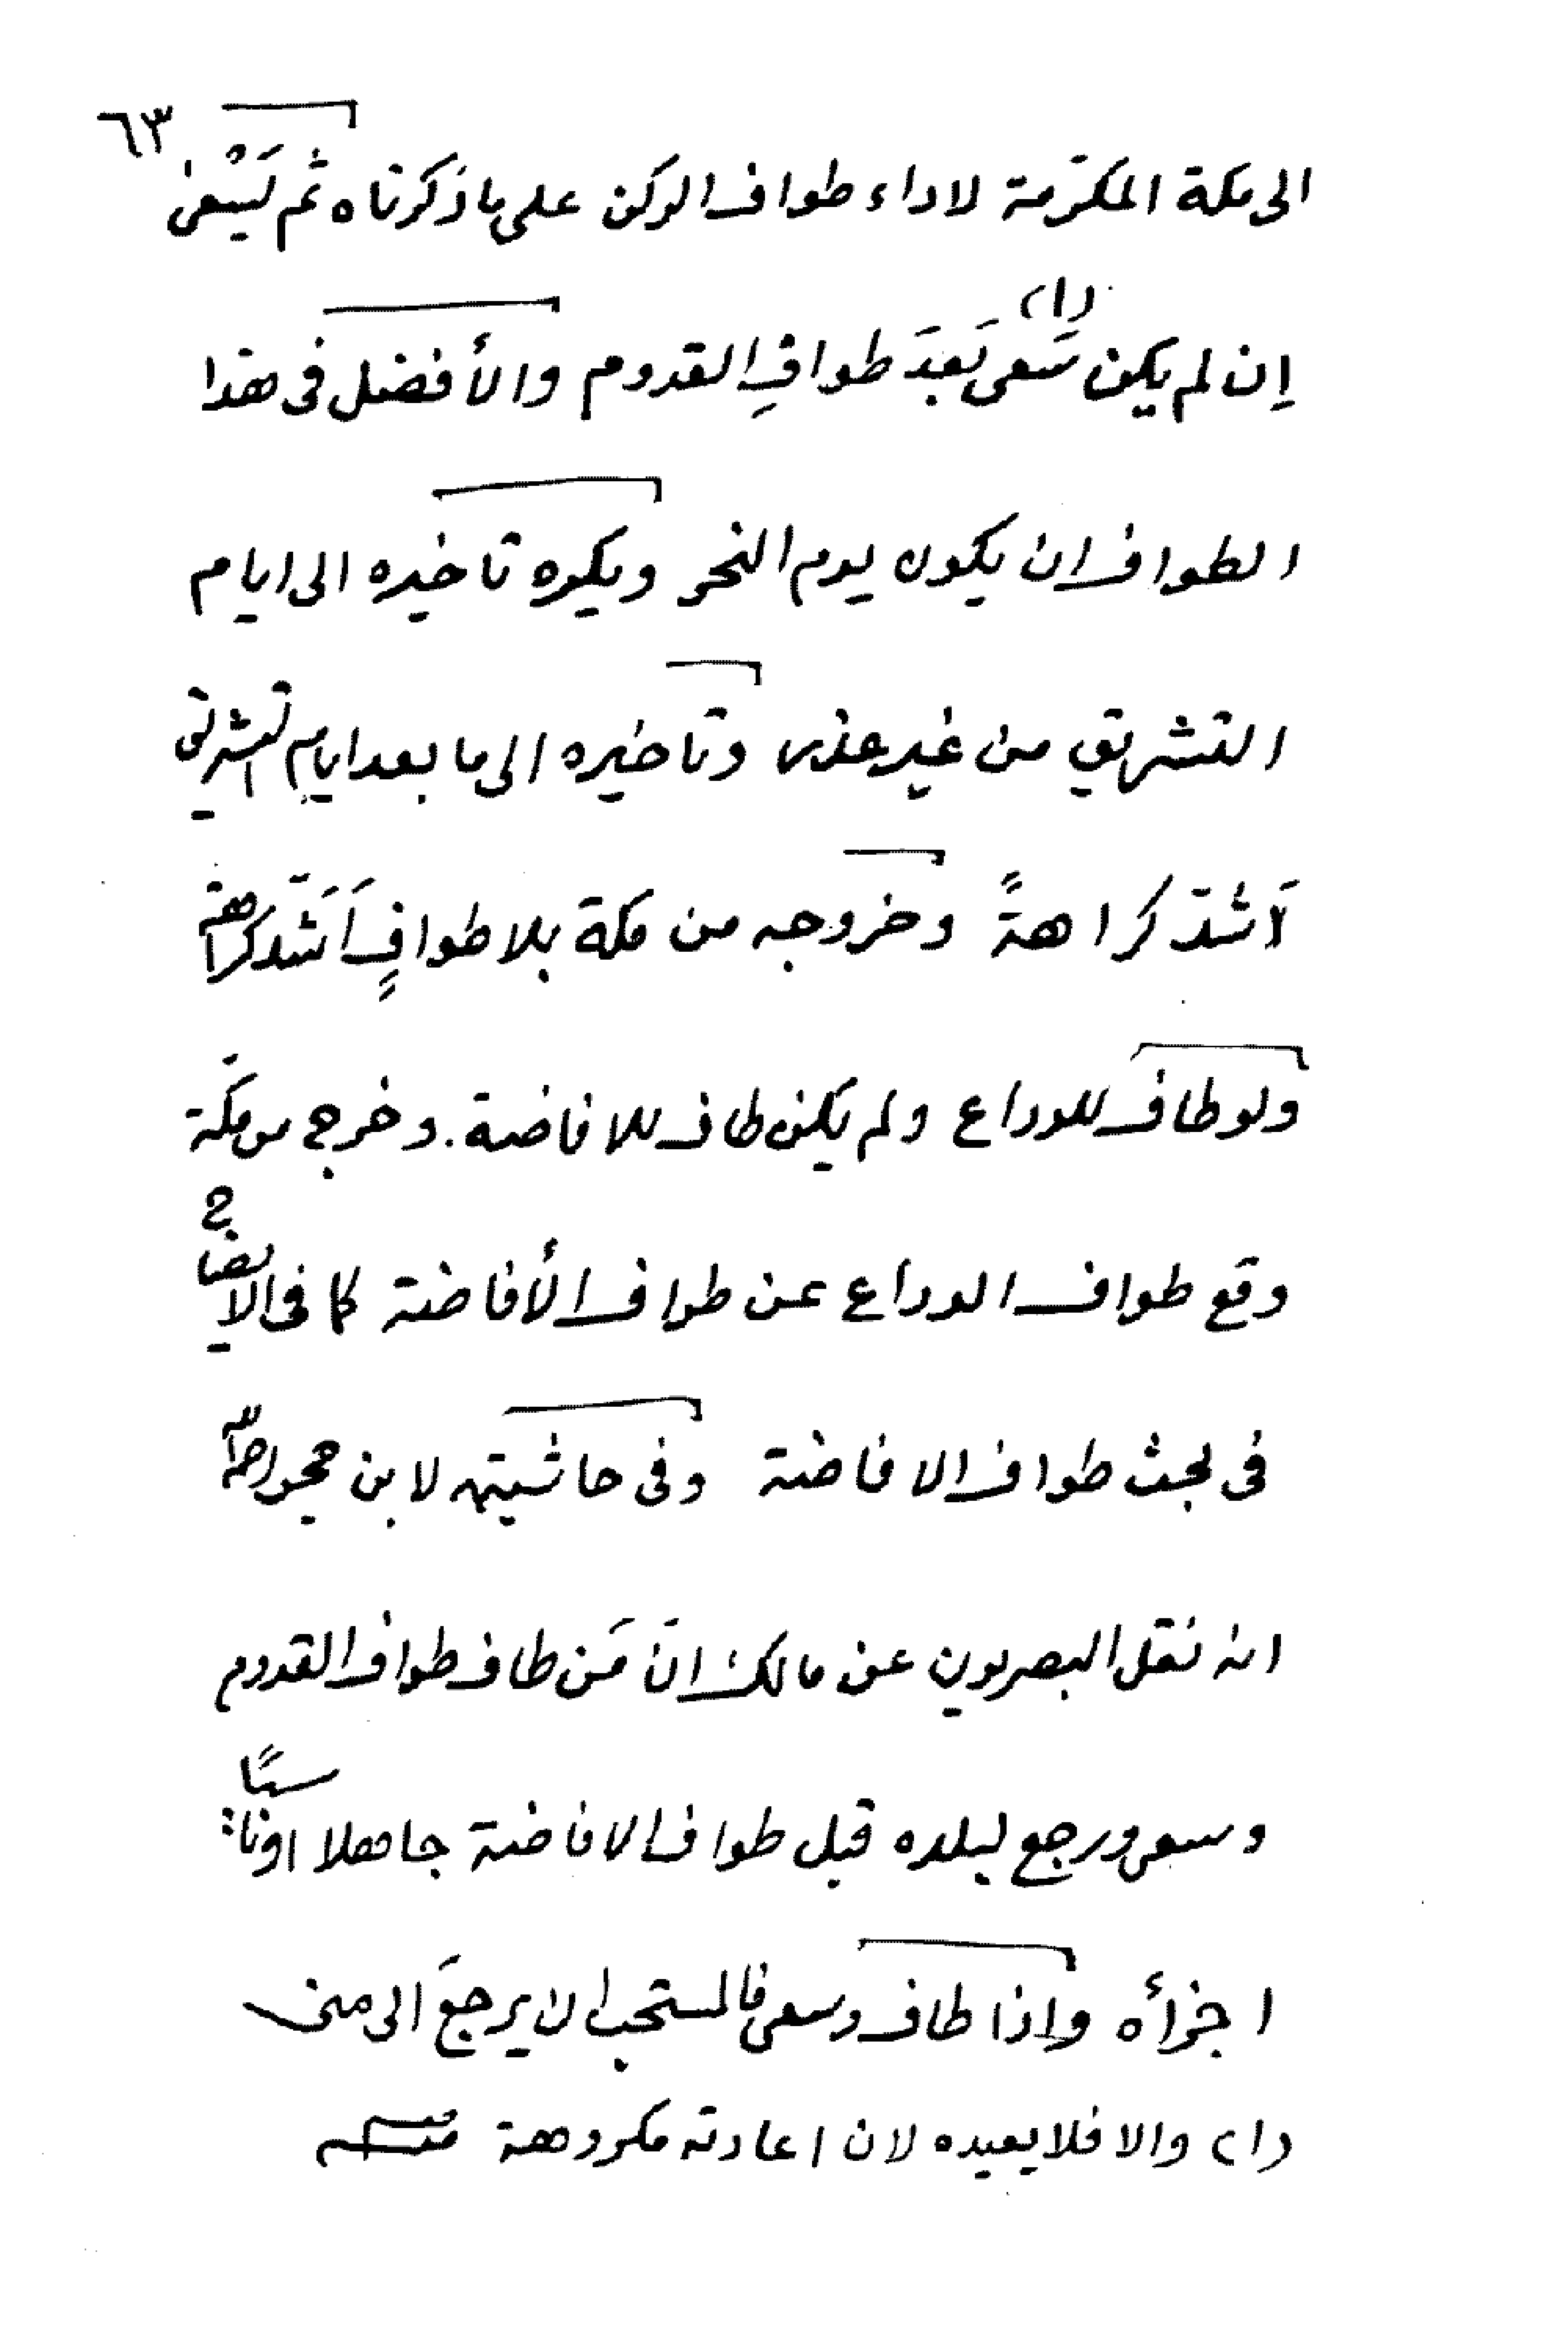 ٦٣
الى مكة المكرّمة لاداء طواف الركن على ما ذكرناه ثم يَسْعىٰ
اِن لم يكن سَعى بَعدَ (١) طوافِ القدوم والأفضل فى هذا
الطواف ان يكون يوم النحر ويكره تاخيره الى ايام
التشريق من غير عذر وتاخيره الى ما بعد ايام التشريق
اَشدّ كراهةً وخروجه من مكة بلا طوافٍ اَشَدّ كراهة
ولو طاف للوداع ولم يكن طاف للافاضة. وخرج من مكّة
وقع طواف الوداع عن طواف الأفاضة كما فى الايضاح
فى بحث طواف الافاضة وفى حاشيته لابن حجر رحمه الله
انه نقل البصريون عن مالك انّ مَن طاف طواف القدوم
وسعى ورجع لبلده قبل طواف الافاضة جاهلا او ناسيًا
اجزأه واذا طاف وسعى فالمستحب ان يرجعَ الى منى
(١) والا فلا يعيده لان اعادته مكروهة منه